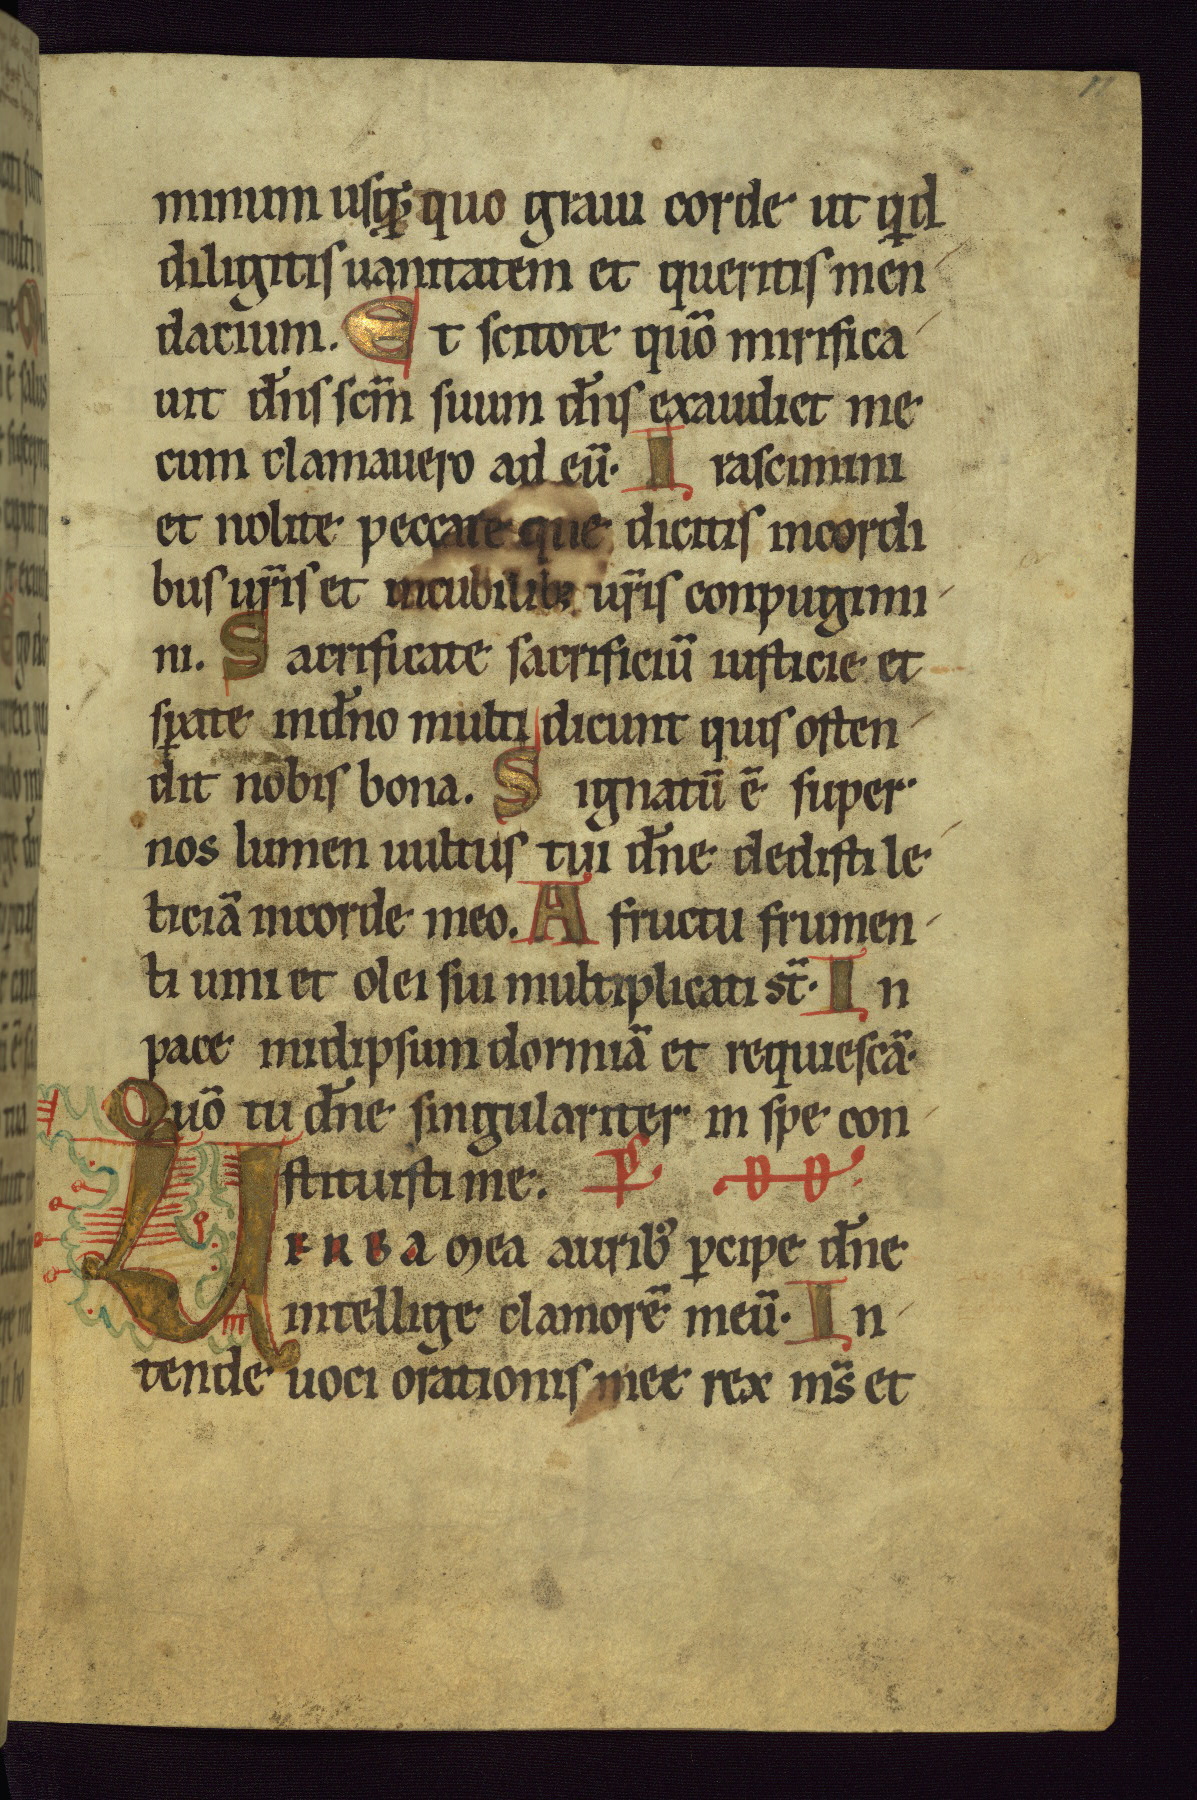 minum usq; quo graui corde ut qd
diligitis uanitatem et queritis men
dacium. Et scitote quō mirifica
uit dn̄s scm̄ suum dn̄s exaudiet me
cum clamauero ad eū. Irascimini
et nolite peccare que dicitis incordi
bus ur̄is et incubilib; ur̄is conpugimi
ni. Sacrificate sacrificiū iusticie et
sꝑate indn̄o multi dicunt quis osten
dit nobis bona. Signatū ē super
nos lumen uultus tui dn̄e dedisti le
ticiā incorde meo. A fructu frumen
ti uini et olei sui multiplicati st̄. In
pace inidipsum dormiā et requiescā.
Quō tu dn̄e singulariter in spe con
stituisti me. PS DD.
UERBA mea aurib; ꝑcipe dn̄e
intellige clamorē meū. In
tende uoci orationis mee rex ms̄ et